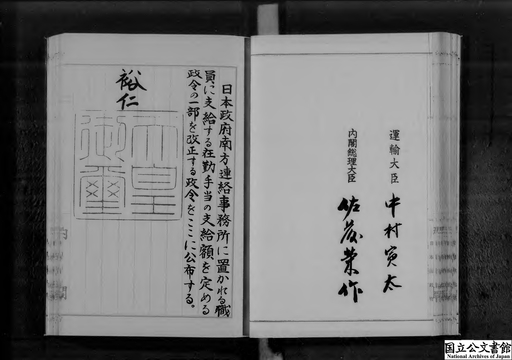 運輸大臣 中村寅太
内閣総理大臣 佐藤栄作
日本政府南方連絡事務所に置かれる職
員に支給する在勤手当の支給額を定める
政令の一部を改正する政令をここに公布する。
裕仁
天皇
御璽
国立公文書館
National Archives of Japan